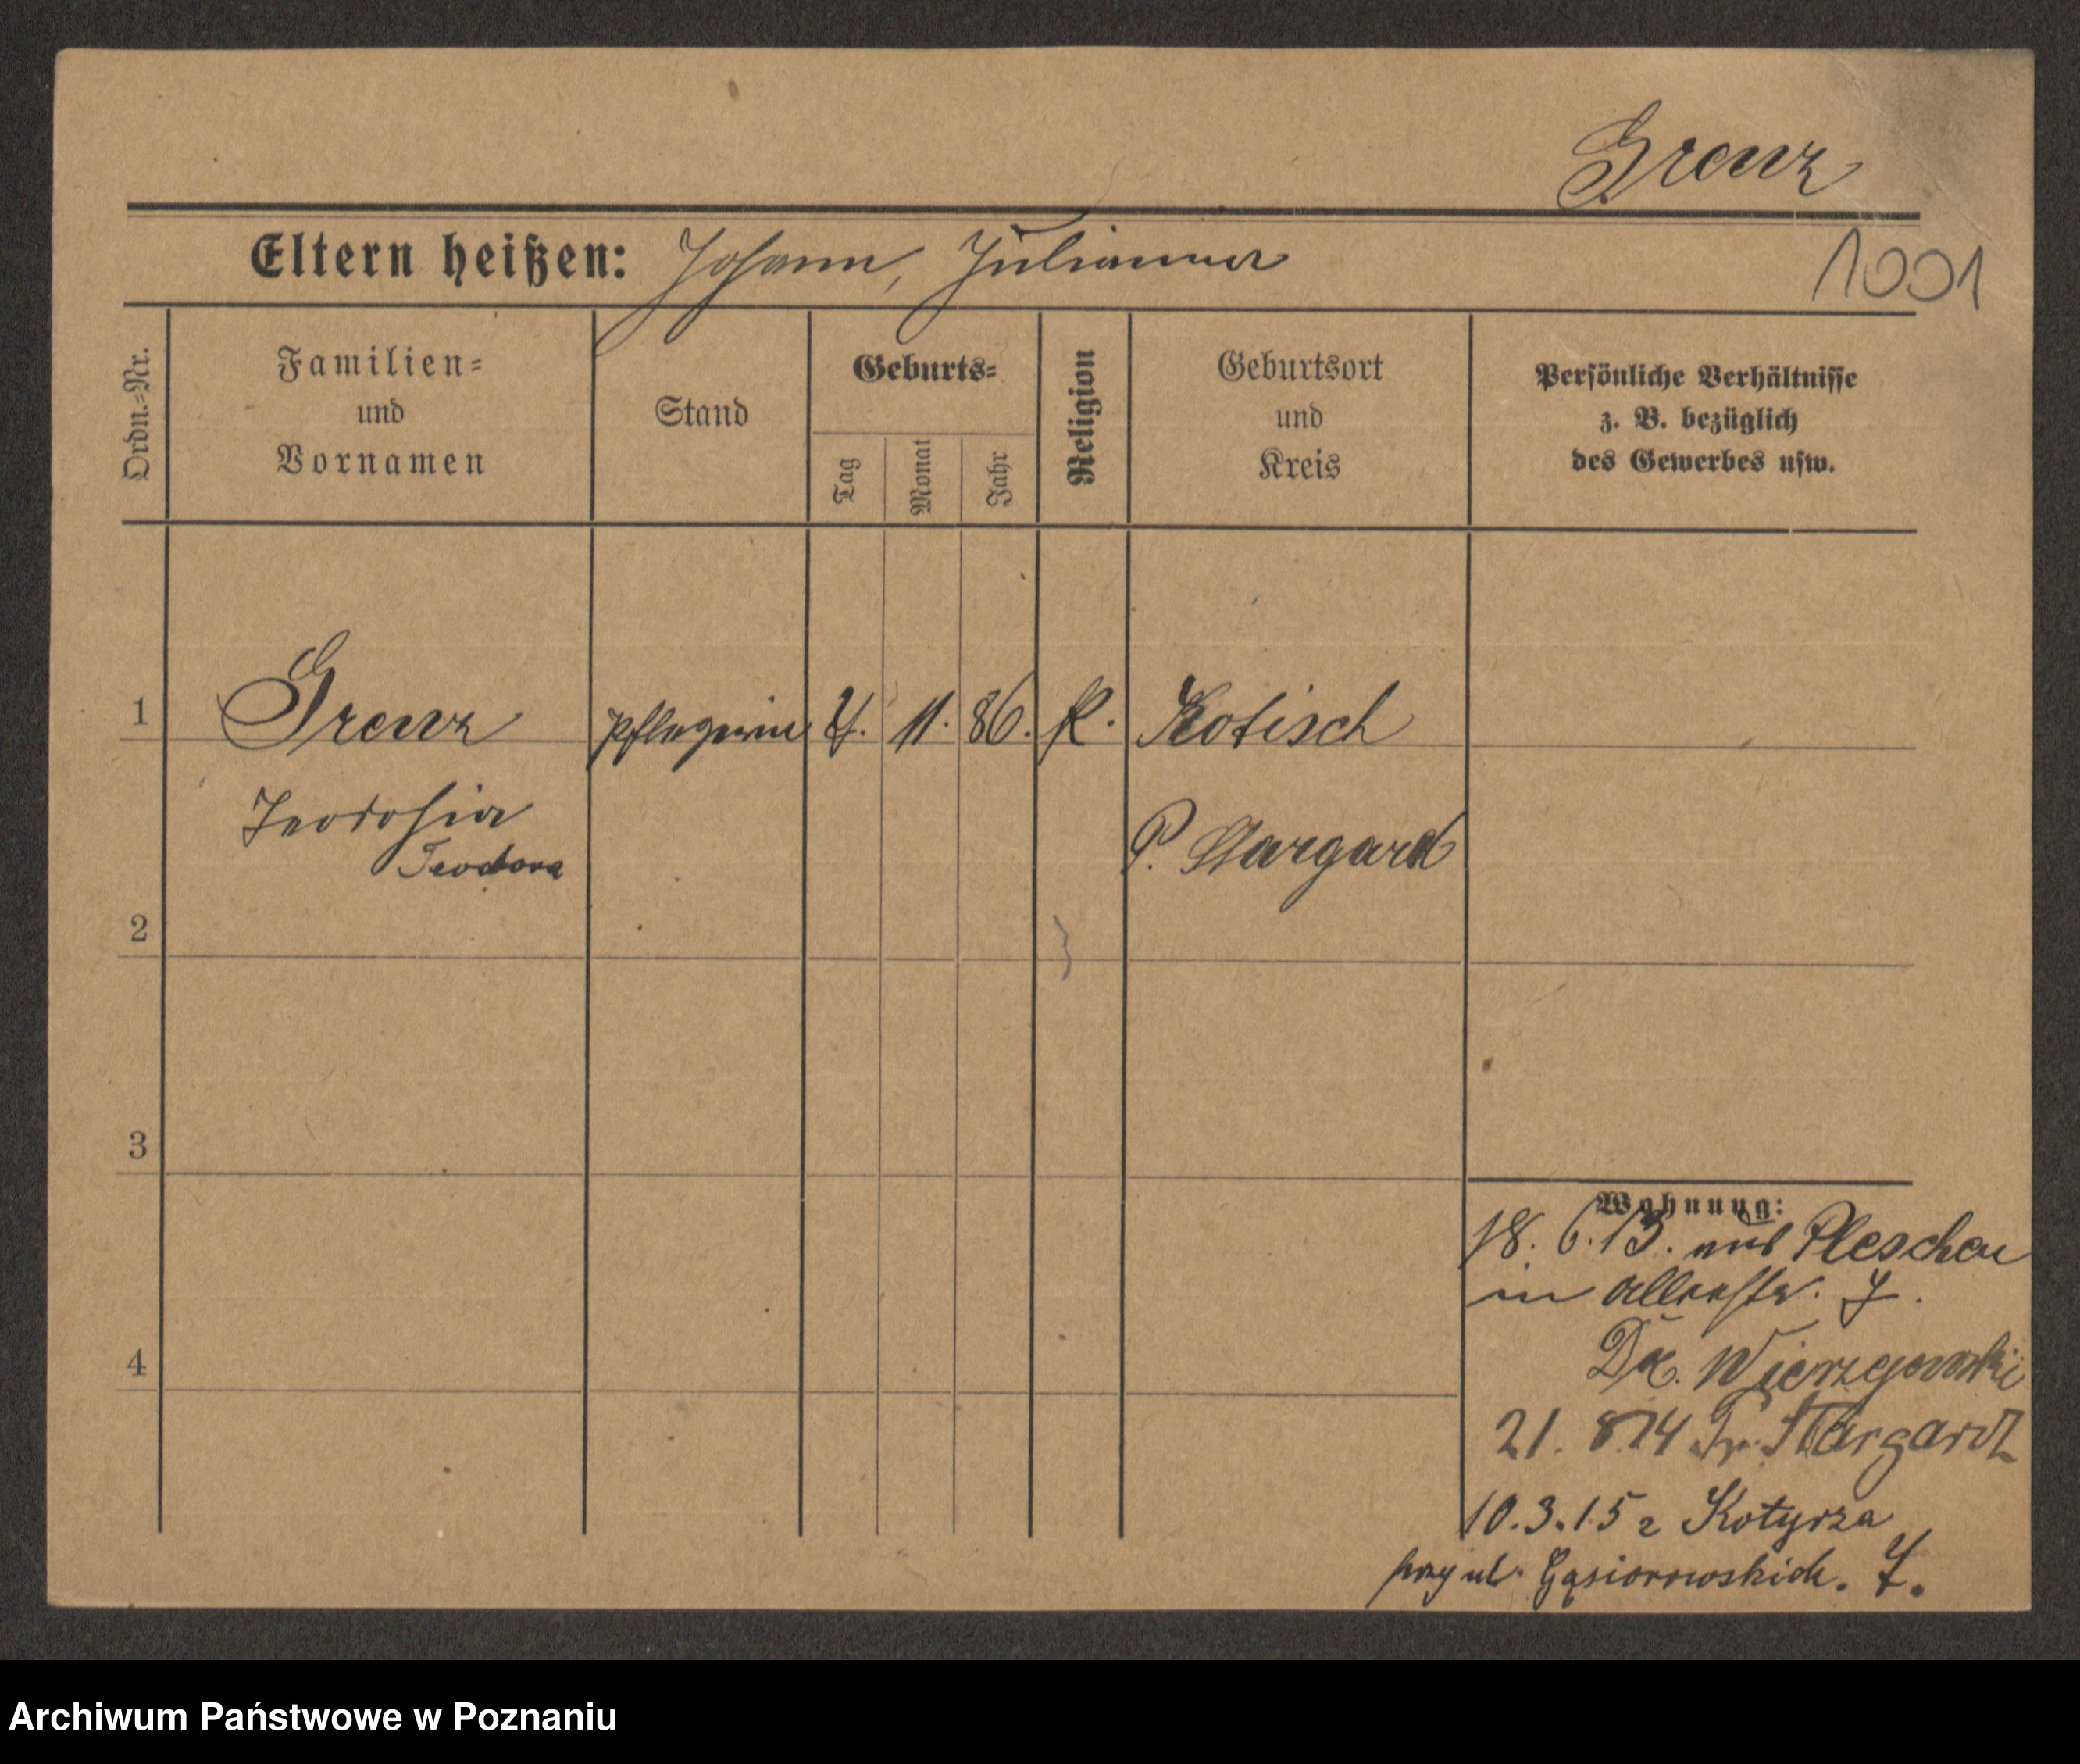 Grenz
Eltern heißen: Johann, Julianna
1001
Ordn.=Nr.
Familien=
und
Vornamen
Stand
Geburts=
Tag
Monat
Jahr
Religion
Geburtsort
und
Kreis
Persönliche Verhältnisse
z. B. bezüglich
des Gewerbes usw.
1 Grenz Pflegerin 7. 11. 86. K. Kotisch
Teodosia P. Stargard
Teodora
2
3
4
Wohnung:
18. 6. 13. aus Pleschen
in 7.
Dr.
21. 8 14 Pr. Stargard
10. 3. 15 z Kotyrza
przy ul. Gąsiorowskich. 7.
Archiwum Państwowe w Poznaniu